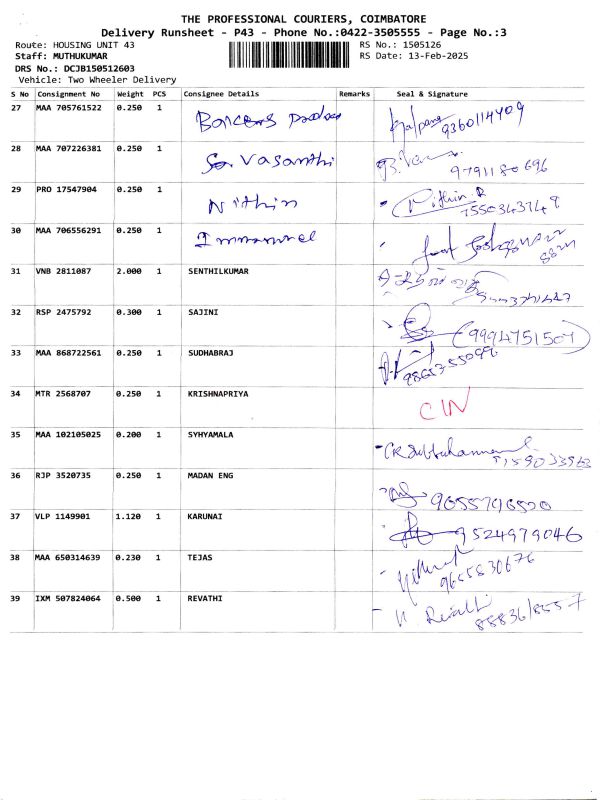 THE PROFESSIONAL COURIERS, COIMBATORE
Delivery Runsheet - P43 - Phone No.:0422-3505555 - Page No.:3
Route: HOUSING UNIT 43 RS No.: 1505126
Staff: MUTHUKUMAR RS Date: 13-Feb-2025
DRS No.: DCJB150512603
Vehicle: Two Wheeler Delivery
S No Consignment No Weight PCS Consignee Details Remarks Seal & Signature
27 MAA 705761522 0.250 1 Kalpana 9360114409
28 MAA 707226381 0.250 1 Vasanthi 9791180696
29 PRO 17547904 0.250 1 Nithin Nithin.R 7550343749
30 MAA 706556291 0.250 1 Immanuel
31 VNB 2811087 2.000 1 SENTHILKUMAR
32 RSP 2475792 0.300 1 SAJINI 9994751507
33 MAA 868722561 0.250 1 SUDHABRAJ
34 MTR 2568707 0.250 1 KRISHNAPRIYA CIN
35 MAA 102105025 0.200 1 SYHYAMALA
36 RJP 3520735 0.250 1 MADAN ENG 9655796520
37 VLP 1149901 1.120 1 KARUNAI 9524979046
38 MAA 650314639 0.230 1 TEJAS 9655830676
39 IXM 507824064 0.500 1 REVATHI